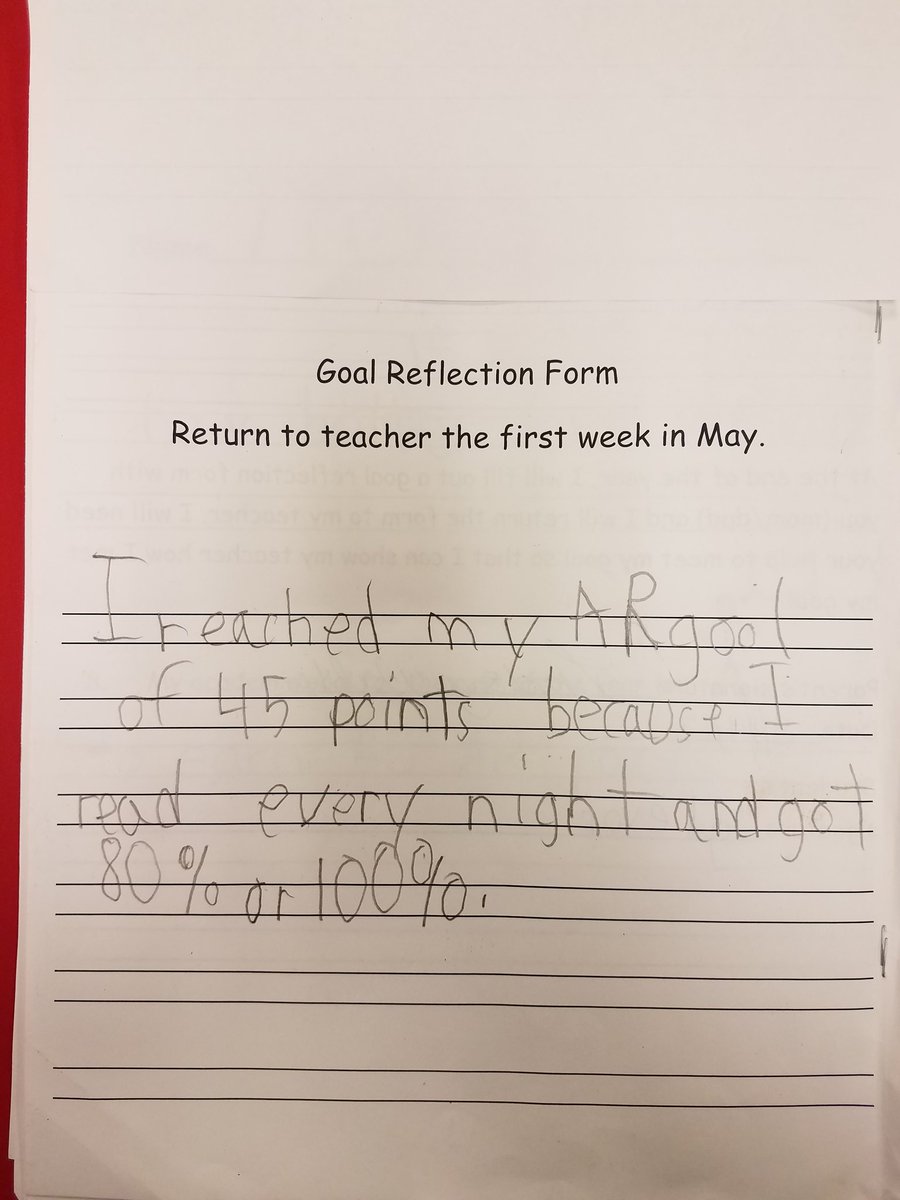 Goal Reflection Form
Return to teacher the first week in May.
I reached my AR goal
of 45 points because I
read every night and got
80% or 100%.